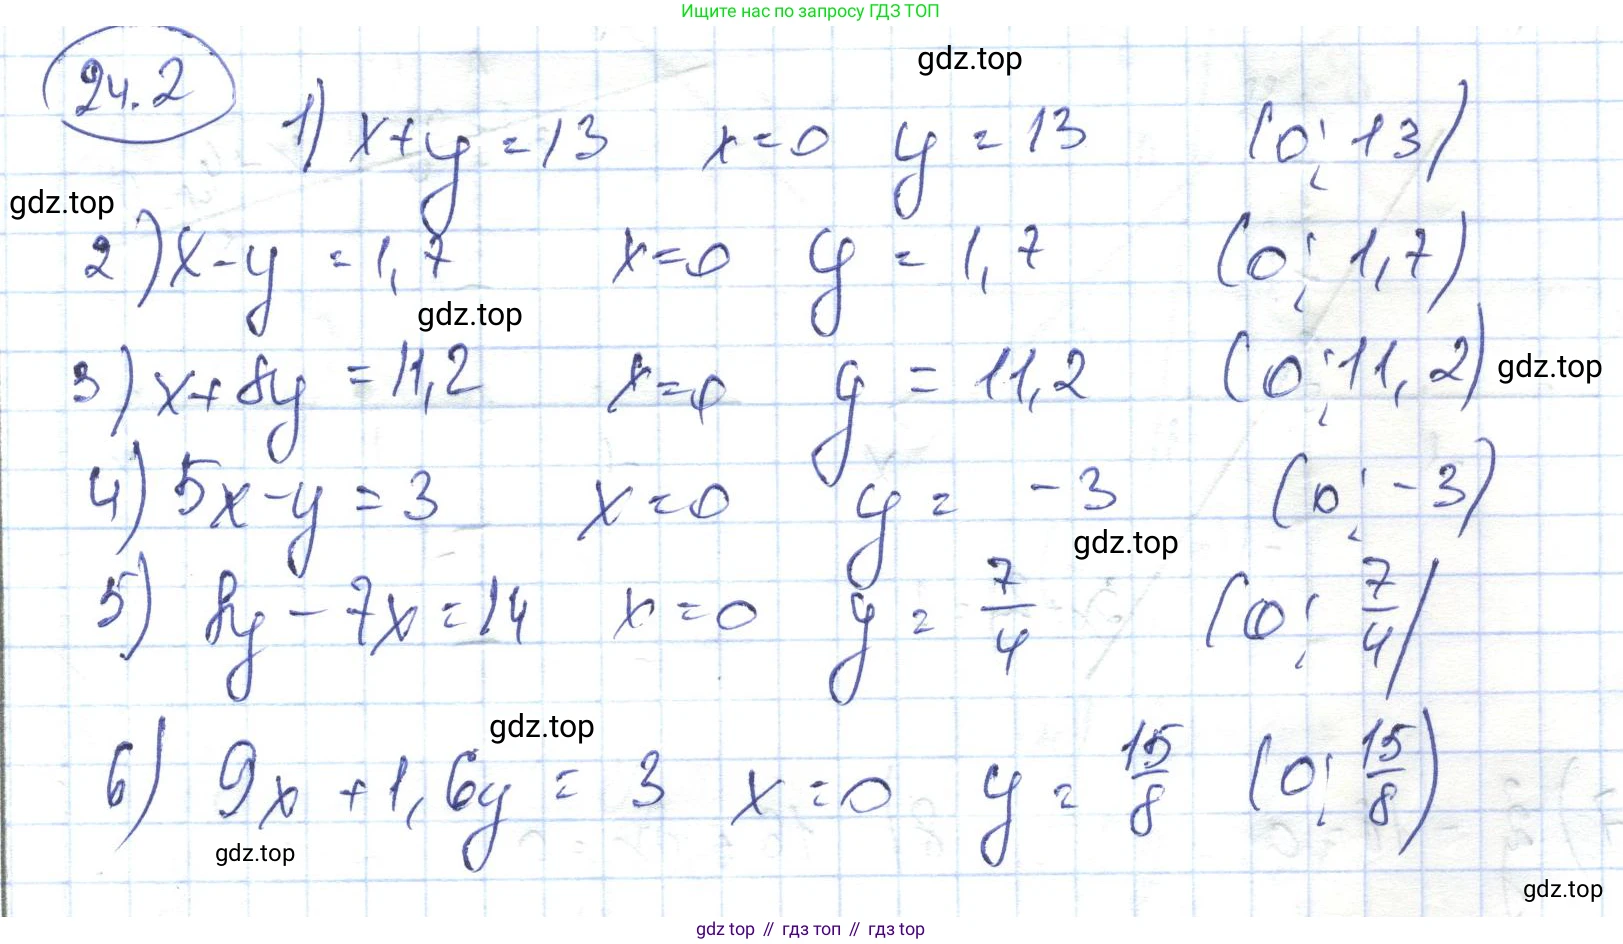 Ищите нас по запросу ГДЗ ТОП
24.2
gdz.top
1) x+y=13 x=0 y=13 (0; 13)
gdz.top
2) x-y=1,7 x=0 y=1,7 (0; 1,7)
gdz.top
3) x+8y=11,2 x=0 y=11,2 (0; 11,2)
gdz.top
4) 5x-y=3 x=0 y=-3 (0; -3)
gdz.top
5) 8y-7x=14 x=0 y=7/4 (0; 7/4)
gdz.top
6) 9x+1,6y=3 x=0 y=15/8 (0; 15/8)
gdz.top
gdz.top
gdz top // гдз топ // гдз top